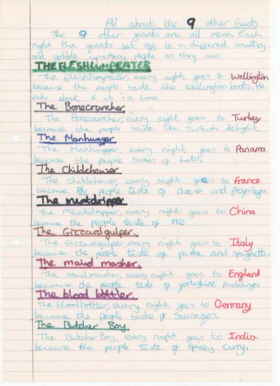 All about the 9 other Giants
The 9 other giants are all mean. Each
night the giants set off to a different country
and gobble up human beings as they
THE FLESHLUMPEATER
The fleshlumpeater every night goes to Wellington
because the people taste like wellington boots. He
only
The Bonecruncher
The Bonecruncher every night goes to Turkey
because the people taste like turkish delight.
The Manhugger
The Manhugger every night goes to Panama
because the people tastes of hats.
The Childchewer
The Childchewer every night goes to France
because the people taste of cheese and
The meatdripper
The Meatdripper every night goes to China
because the people taste of
The Gizzardgulper.
The Gizzardgulper every night goes to Italy
because the people taste of pasta and spaghetti
The maid masher.
The maidmasher every night goes to England
because the people taste of yorkshire puddings
The blood bottler
The bloodbottler every night goes to Germany
because the people taste of sausages.
The Butcher Boy
The Butcher Boy every night goes to India
because the people taste of spicey curry.